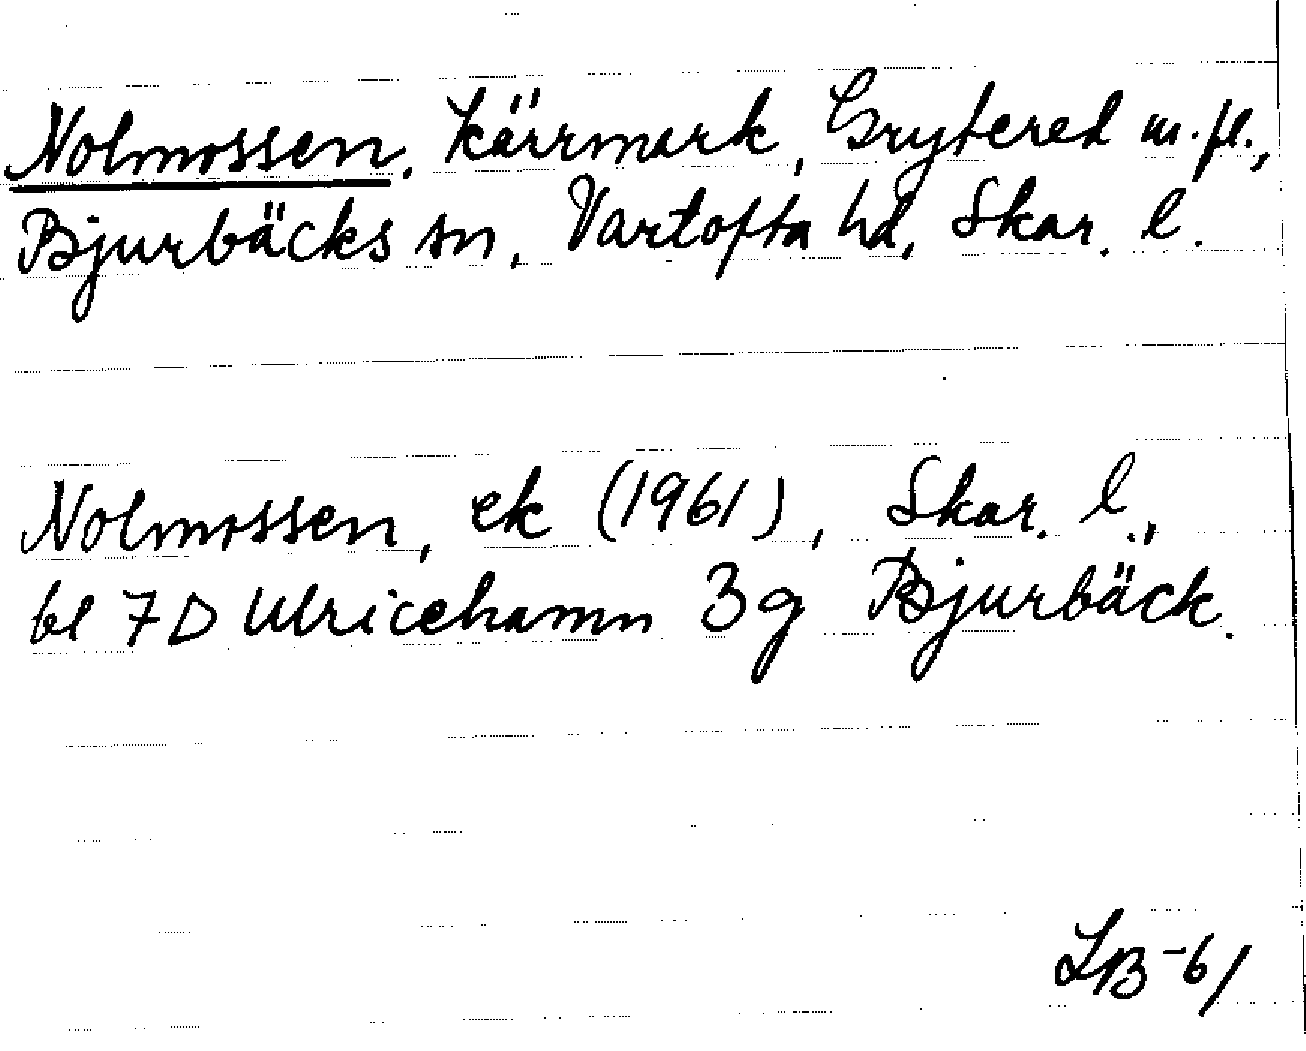 Nolmossen. Kärrmark, Grytered m.fl.,
Bjurbäcks sn, Vartofta hd, Skar. l.
Nolmossen, ek (1961), Skar. l.,
bl 7D Ulricehamn 3g Bjurbäck.
LB-61